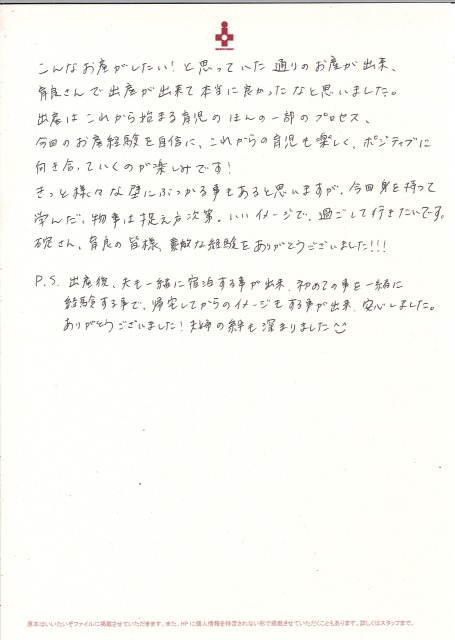 こんなお産がしたい！と思っていた通りのお産が出来、
育良さんで出産が出来て本当に良かったなと思いました。
出産はこれから始まる育児のほんの一部のプロセス、
今回のお産経験を自信に、これからの育児も楽しく、ポジティブに
向き合っていくのが楽しみです！
きっと様々な壁にぶつかる事もあると思いますが、今回身を持って
学んだ、物事は捉え方次第。いいイメージで、過ごして行きたいです。
碗さん、育良の皆様、素敵な経験をありがとうございました!!!
P.S. 出産後、夫も一緒に宿泊する事が出来、初めての事を一緒に
経験する事で、帰宅してからのイメージもする事が出来、安心しました。
ありがとうございました！夫婦の絆も深まりました
原本はいいたいぞファイルに掲載させていただきます。また、HPに個人情報を特定されない形で掲載させていただくこともあります。詳しくはスタッフまで。